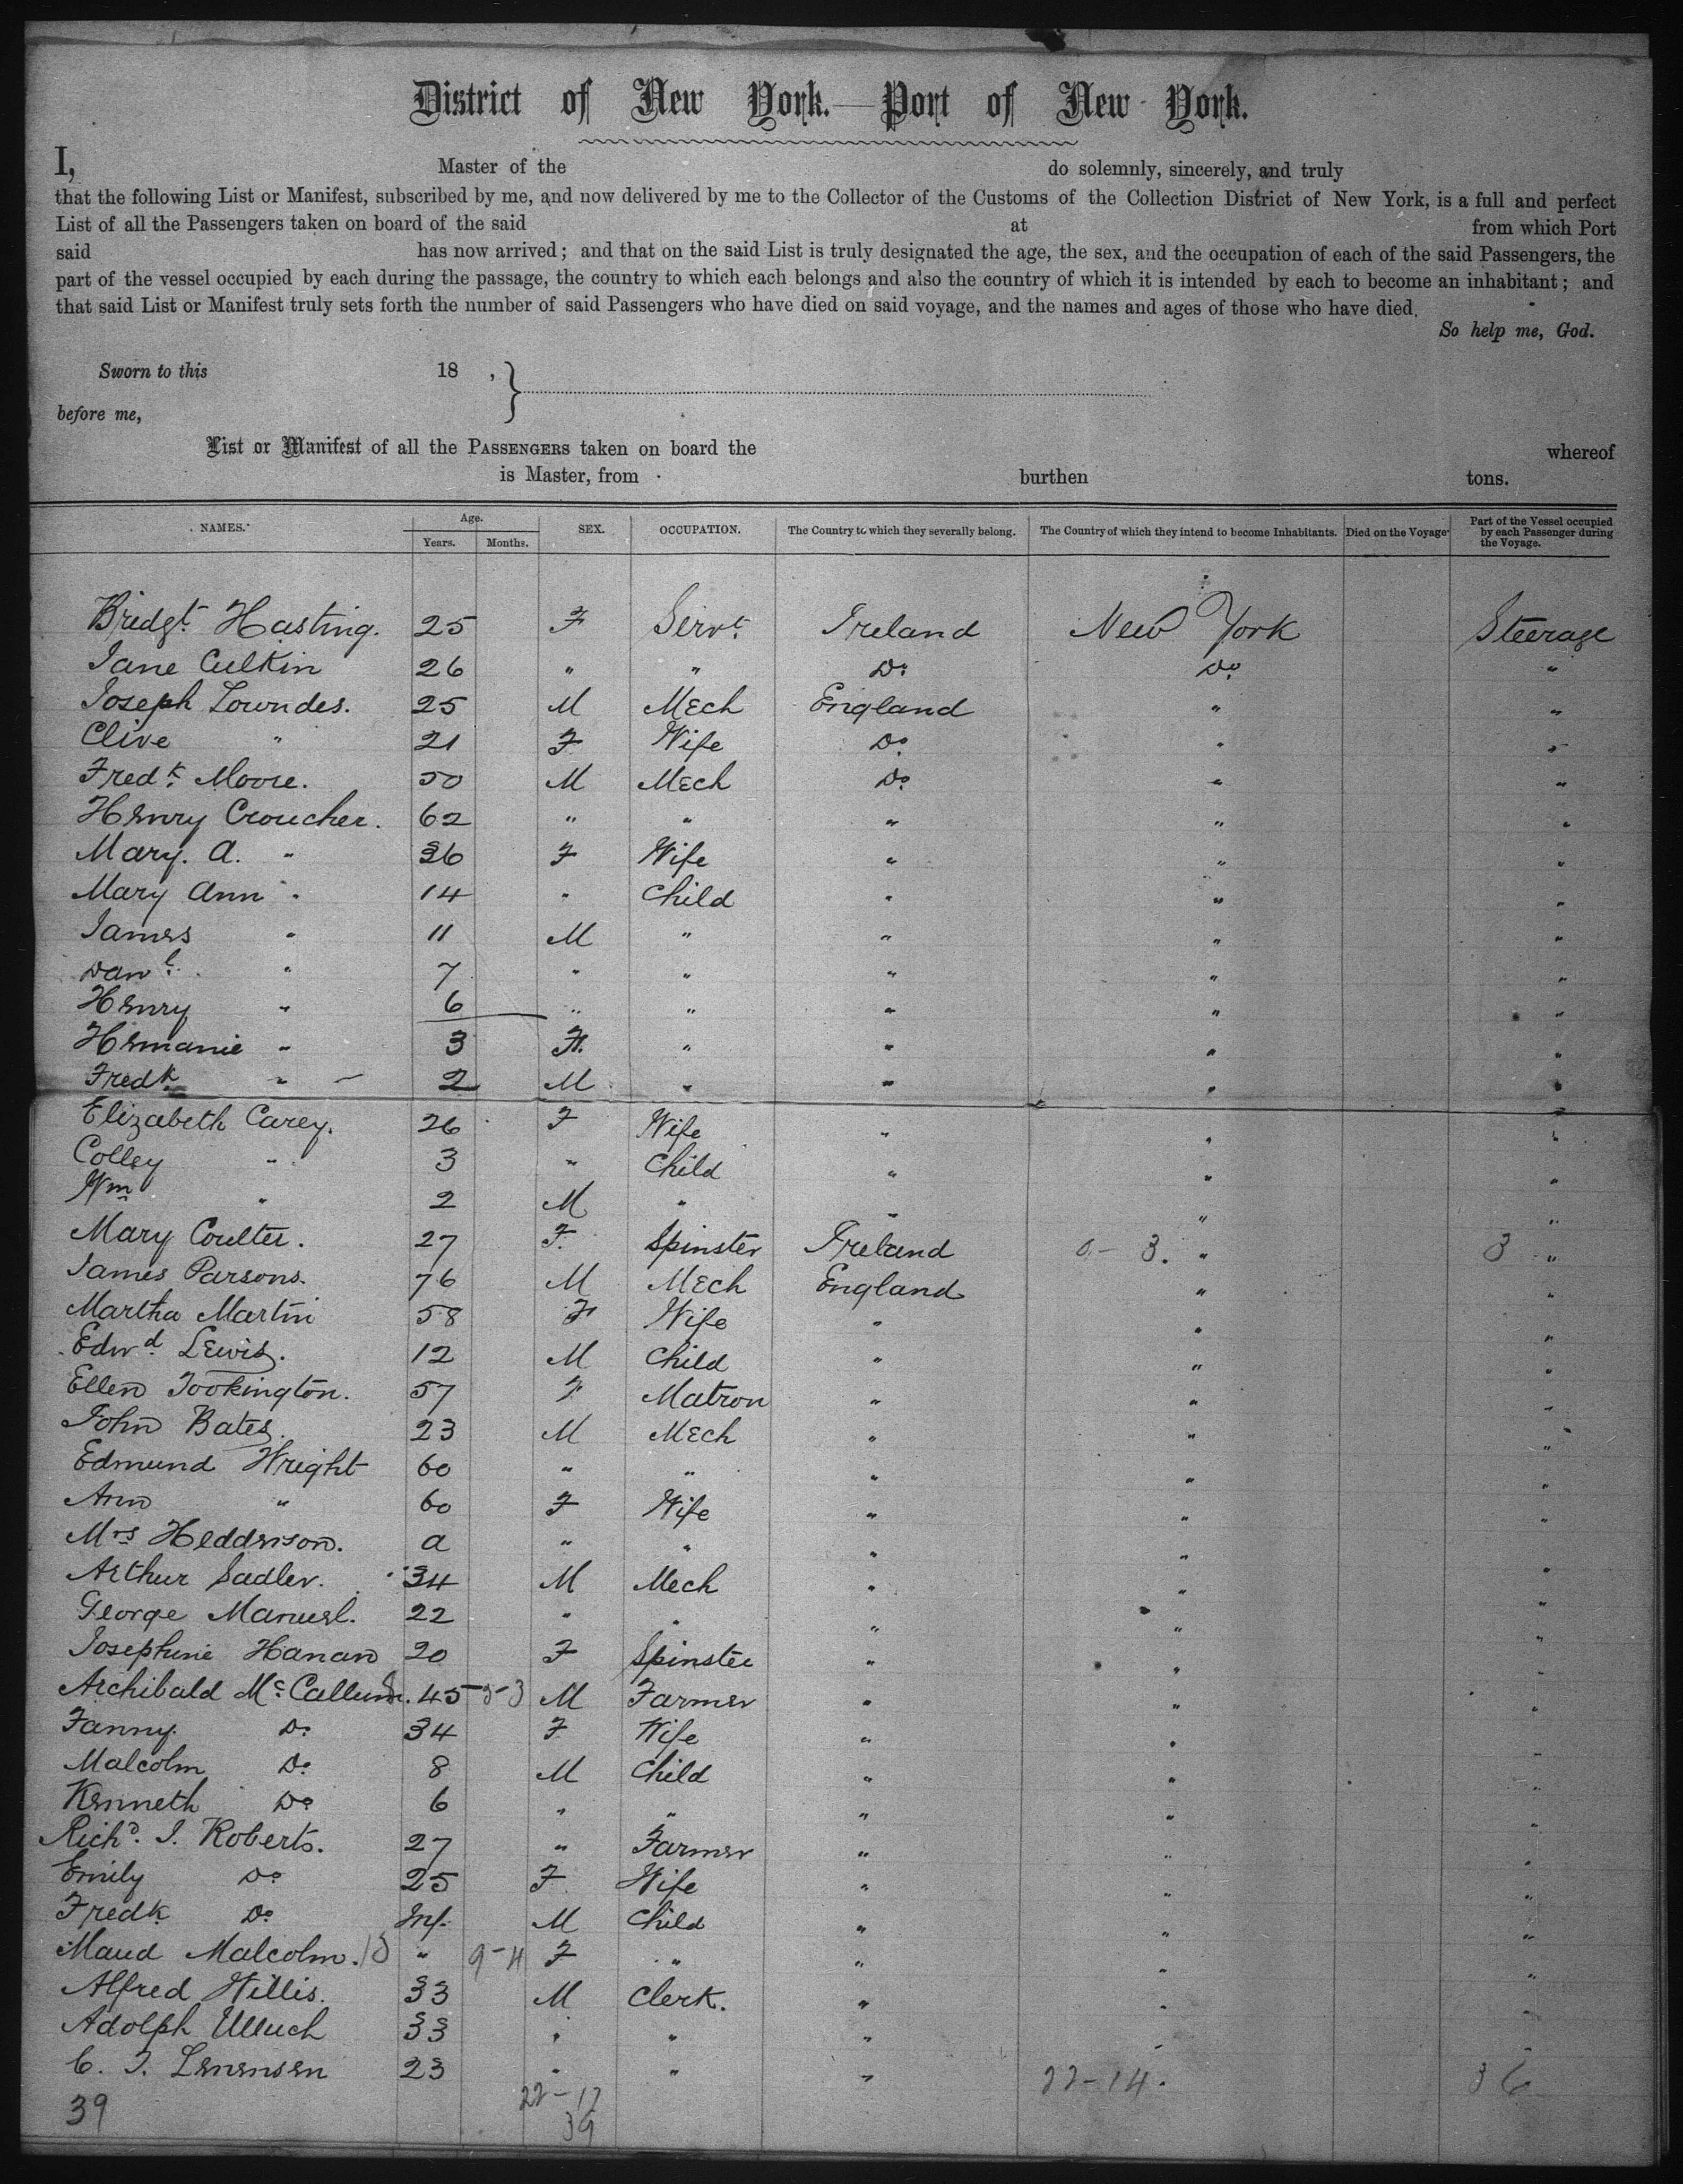 District of New York.—Port of New York.
I, Master of the do solemnly, sincerely, and truly
that the following List or Manifest, subscribed by me, and now delivered by me to the Collector of the Customs of the Collection District of New York, is a full and perfect
List of all the Passengers taken on board of the said at from which Port
said has now arrived; and that on the said List is truly designated the age, the sex, and the occupation of each of the said Passengers, the
part of the vessel occupied by each during the passage, the country to which each belongs and also the country of which it is intended by each to become an inhabitant; and
that said List or Manifest truly sets forth the number of said Passengers who have died on said voyage, and the names and ages of those who have died.
So help me, God.
Sworn to this 18 ,
before me,
List or Manifest of all the PASSENGERS taken on board the whereof
is Master, from burthen tons.
NAMES. Age. Years. Months. SEX. OCCUPATION. The Country to which they severally belong. The Country of which they intend to become Inhabitants. Died on the Voyage Part of the Vessel occupied by each Passenger during the Voyage.
Bridgt. Hasting. 25 F Servt. Ireland New York Steerage
Jane Culkin 26 " " Do. Do. "
Joseph Lowndes. 25 M Mech England " "
Clive " 21 F Wife Do. " "
Fredk. Moore. 50 M Mech Do. " "
Henry Croucher. 62 " " " " "
Mary. A. " 36 F Wife " " "
Mary Ann " 14 " Child " " "
James " 11 M " " " "
Danl. " 7 " " " " "
Henry " 6 " " " " "
Hemanie " 3 F. " " " "
Fredk " 2 M " " " "
Elizabeth Carey. 26 F Wife " " "
Colley " 3 " Child " " "
Wm " 2 M " " " "
Mary Coulter. 27 F. Spinster Ireland 0-3. " 3 "
James Parsons. 76 M Mech England " "
Martha Martin 58 F Wife " " "
Edwd Lewis. 12 M Child " " "
Ellen Tookington. 57 F Matron " " "
John Bates. 23 M Mech " " "
Edmund Wright 60 " " " " "
Ann " 60 F Wife " " "
Mrs Heddenson. a " " " " "
Arthur Sadler. 34 M Mech " " "
George Manuel. 22 " " " " "
Josephine Hanan 20 F Spinster " " "
Archibald McCallum. 45 M Farmer " " "
Fanny Do. 34 F Wife " " "
Malcolm Do. 8 M Child " " "
Kenneth Do. 6 " " " " "
Richd. J. Roberts. 27 " Farmer " " "
Emily Do. 25 F Wife " " "
Fredk Do. Inf. M Child " " "
Maud Malcolm. " 9-4 F " " " "
Alfred Willis. 33 M Clerk. " " "
Adolph Ulluch 33 " " " " "
C. J. Lenensen 23 " " " 22-14. 36
39 22-17
39